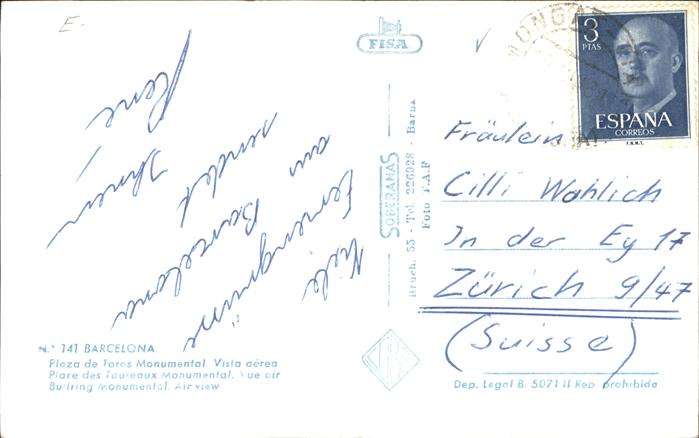 E.
FISA
3
PTAS
ESPAÑA
CORREOS
F.N.M.T.
Viele
Feriengrüsse
aus Barcelona
sendet
Ihnen
René
SOBERANAS
Bruch, 55 - Tel. 226928 - Barna
Foto F.A.F
Fräulein
Cilli Wohlich
In der Ey 17
Zürich 9/47
(Suisse)
N.° 141 BARCELONA
Plaza de Toros Monumental. Vista aérea
Place des Taureaux Monumental. Vue air
Bullring Monumental. Air view
Dep. Legal B. 5071 II Rep. prohibida